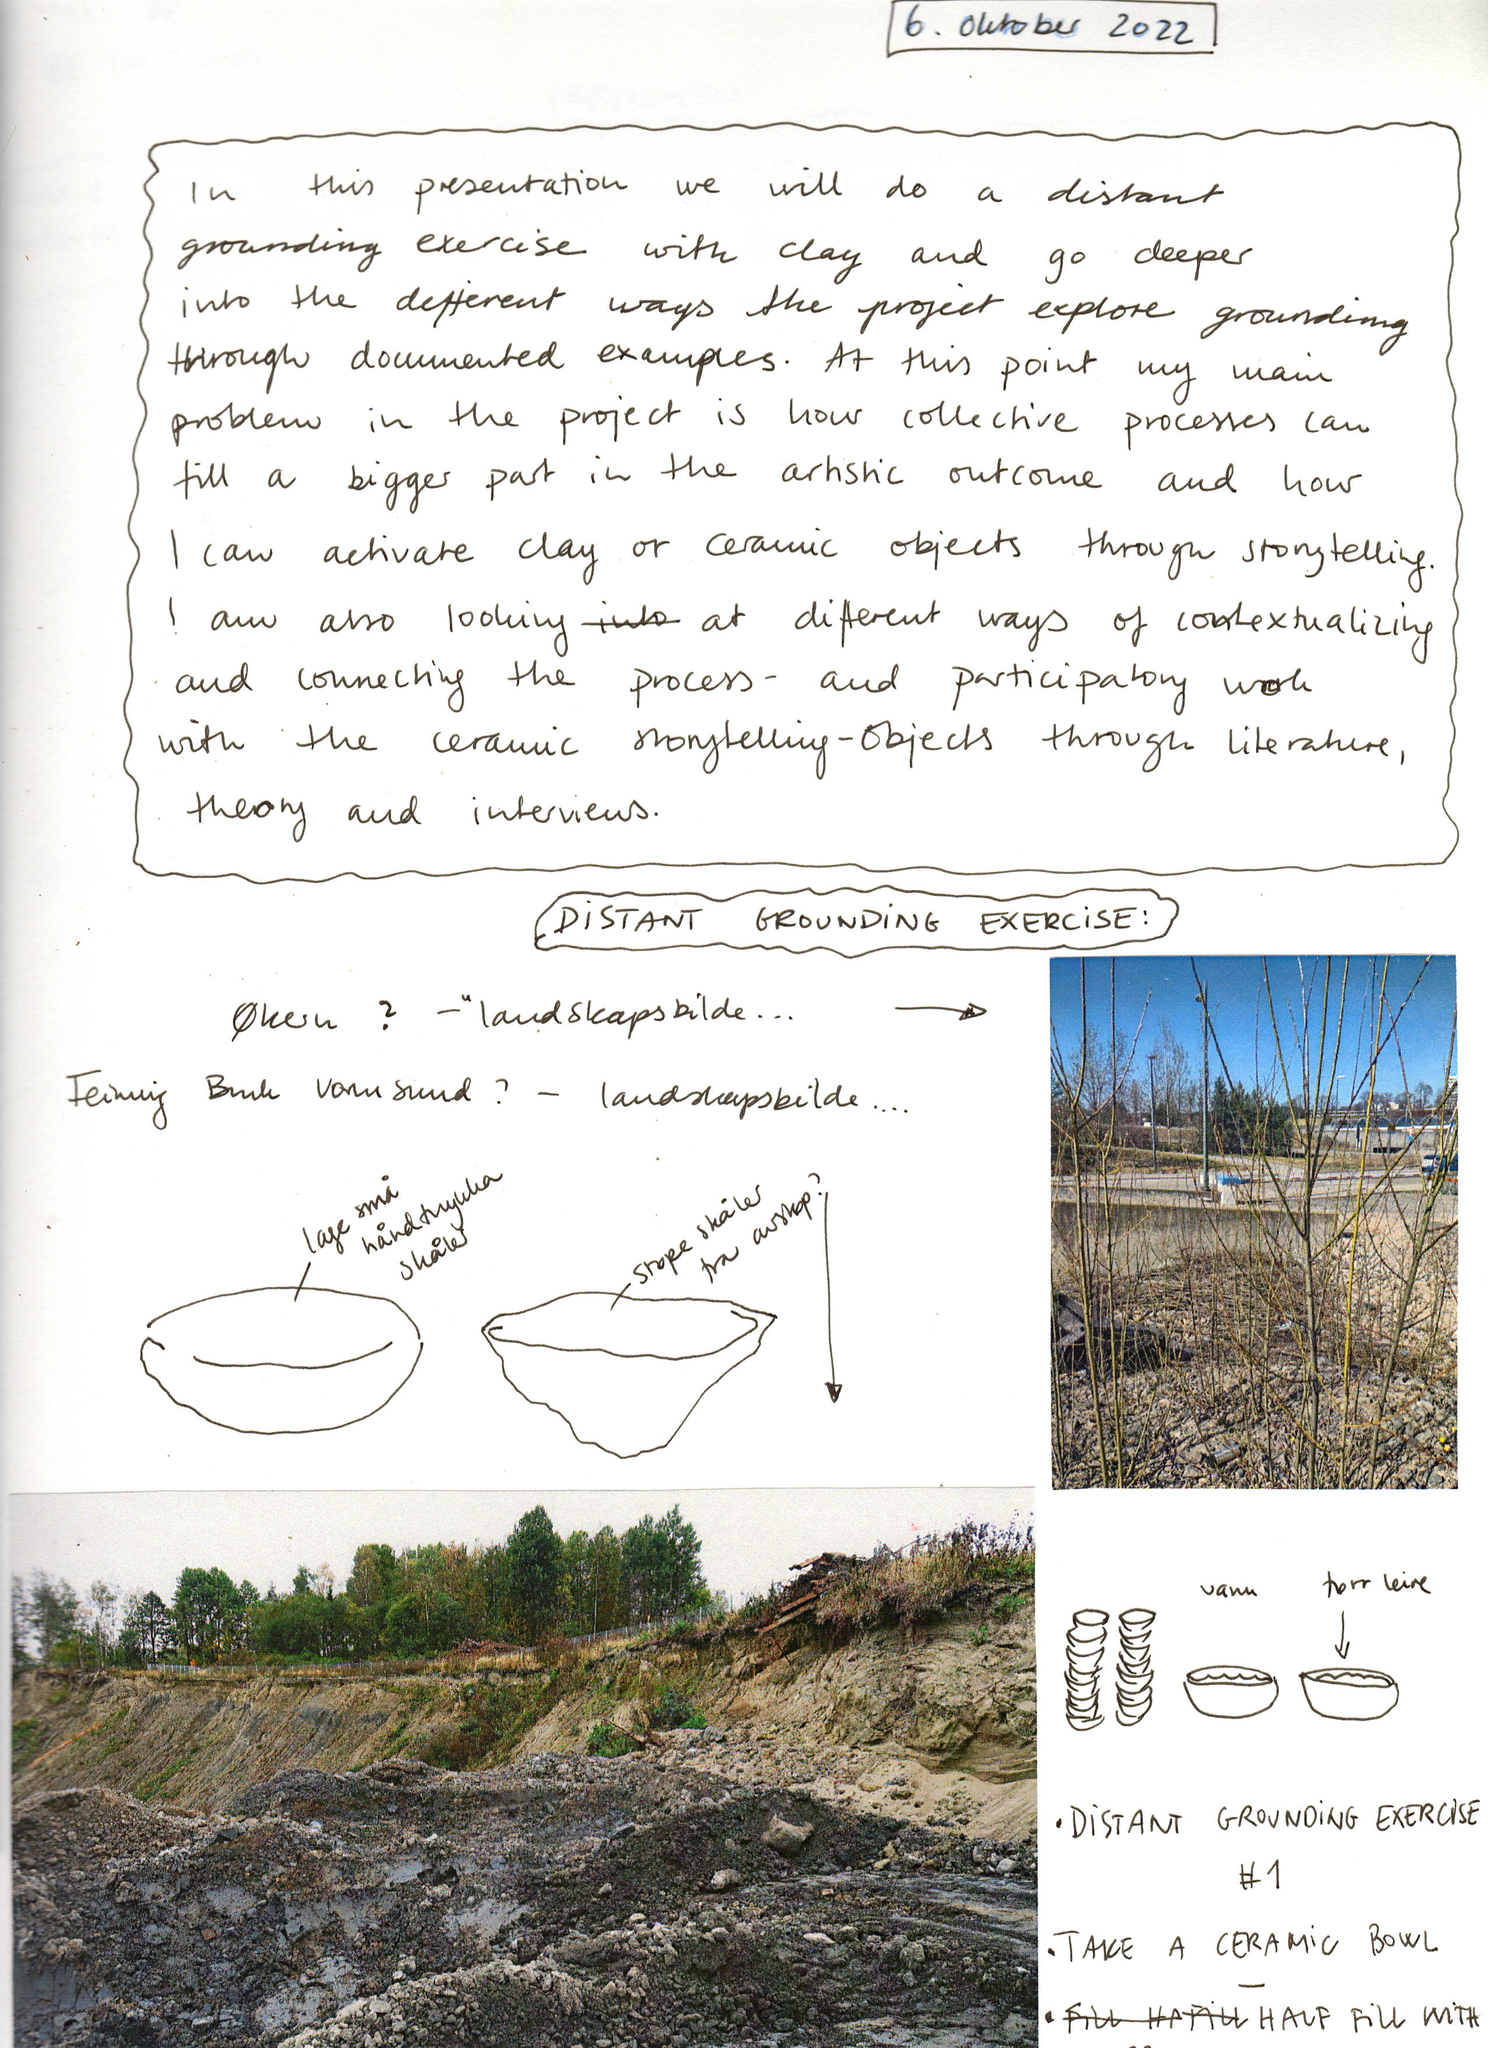 6. oktober 2022
In this presentation we will do a distant
grounding exercise with clay and go deeper
into the different ways the project explore grounding
through documented examples. At this point my main
problem in the project is how collective processes can
fill a bigger part in the artistic outcome and how
I can activate clay or ceramic objects through storytelling.
I am also looking into at different ways of contextualizing
and connecting the process- and participatory work
with the ceramic storytelling-objects through literature,
theory and interviews.
DISTANT GROUNDING EXERCISE:
Økern ? -"landskapsbilde...
Bruk Vormsund ? - landskapsbilde....
lage små
håndtrykka
skåler
støpe skåler
fra avstøp?
vann
tørr leire
• DISTANT GROUNDING EXERCISE
#1
• TAKE A CERAMIC BOWL
• HALF FILL WITH